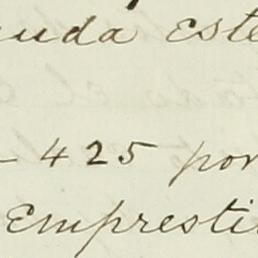 euda este
- 425 por
Empresti